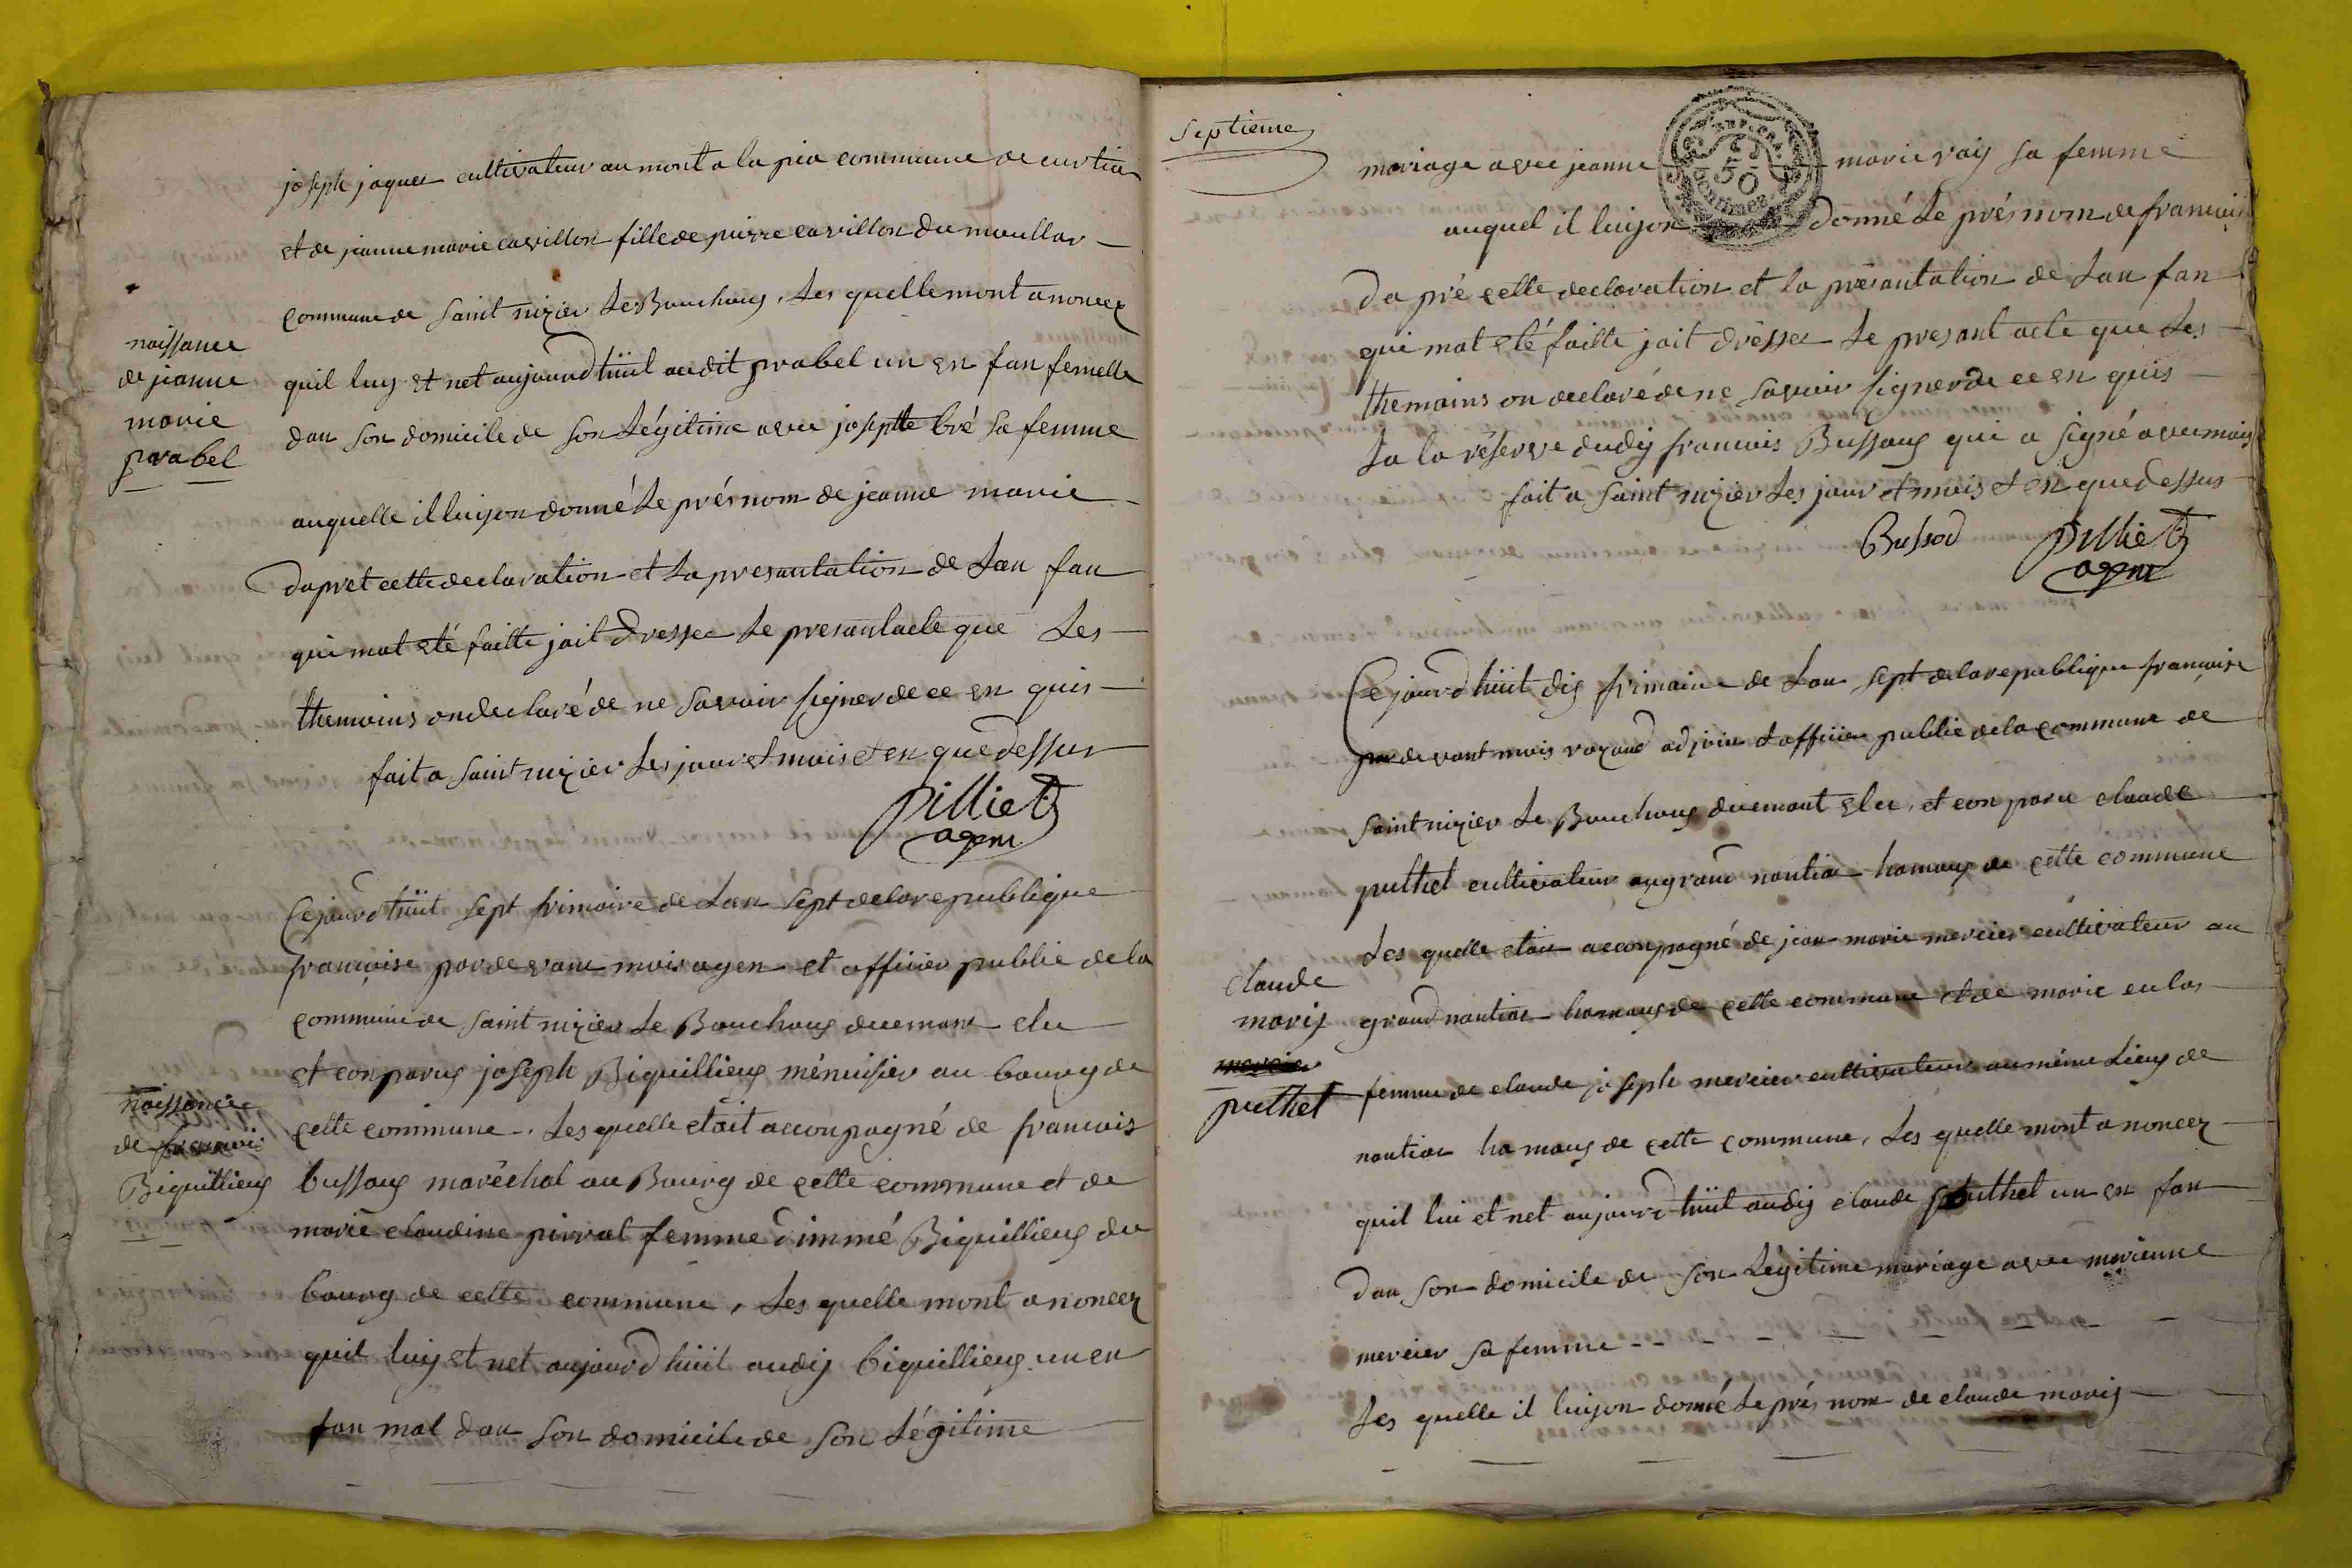 joseph jaques cultivateur au mont a la pia commune de curtia
et de jeanne marie cavillon fille de pierre cavillon du moullar
commune de saint nizier le Bouchoux, les quelle mont anoncez
naissance
de jeanne
marie
prabel
quil luy et net aujourd huit audit prabel un en fan femelle
dan son domicile de son légitime avec josephte bré sa femme
auquelle il luy on donné le prés nom de jeanne marie
dapret cette declaration et la presantation de lan fan
qui mat eté faitte jait dresser le presant acte que les
themoins on declaré de ne savoir signer de ce en quis
fait a saint nizier les jour et mois et en que dessus
pilliet
agent
Cejourd huit sept frimaire de lan sept de la republique
françoise par devant mois agen et officier public de la
commune de saint nizier le Bouchoux duemant elu
et conparus joseph Biquilliey ménuisier au bourg de
naissance
de francois
Biquilliey
cette commune. les quelle etait acconpagné de francois
bussoy maréchal au Bourg de cette commune et de
marie claudine pirrat femme dimmé Biquilliey du
bourg de cette commune, les quelle mont anoncez
quil luy et net aujourd huit audij biquilliey un en
fan mal dan son domicile de son légitime
septieme
50
mariage avec jeanne marie ray sa femme
auquel il luy on donné le prés nom de francois
Da pré cette declaration et la présantation de lan fan
qui mat eté faitte jait dresser le presant acte que les
themoins on declaré de ne savoir signer de ce en quis
la la réserve dudij francois Bussoy qui a signé avec mois
fait a saint nizier les jour et mois et en que dessus
Bussod pilliet
agent
Cejourd huit dix frimaire de lan sept de la republique françoise
par devant mois rozand adjoin et officier public de la commune de
saint nizier le Bouchoux duemant elu, et con paru claude
puthet cultivateur au grand nantia hamaux de cette commune
les quelle etait acconpagné de jean marie mercier cultivateur au
claude
marij
mercier
puthet
grand nantia hamaux de cette commune et de marie culas
femme de claude joseph mercier cultivateur au même lieux de
nantia hamaux de cette commune, les quelle mont anoncez
quil lui et net aujourd huit audij claude puthet un en fan
dan son domicile de son légitime mariage avec marienne
mercier sa femme
les quelle il luy on donné le prés nom de claude marij